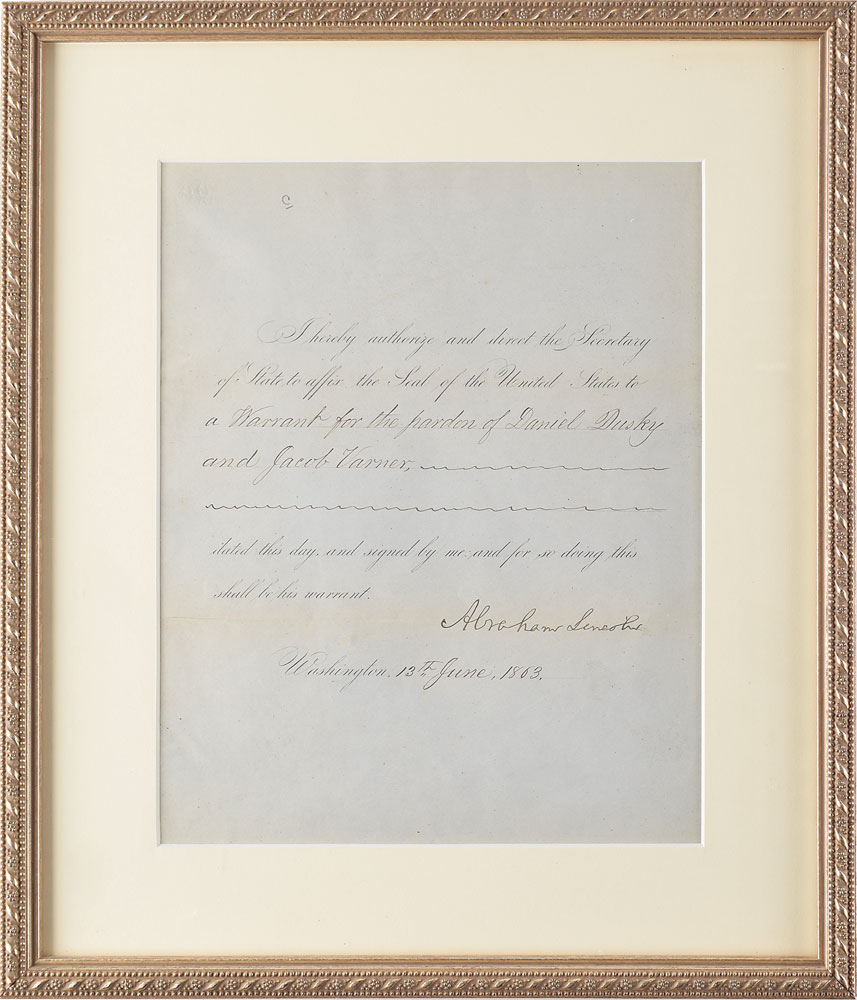 I hereby authorize and direct the Secretary
of State to affix the Seal of the United States to
a Warrant for the pardon of Daniel Dusky
and Jacob Varner,
dated this day, and signed by me: and for so doing this
shall be his warrant.
Abraham Lincoln
Washington, 13th June, 1863.